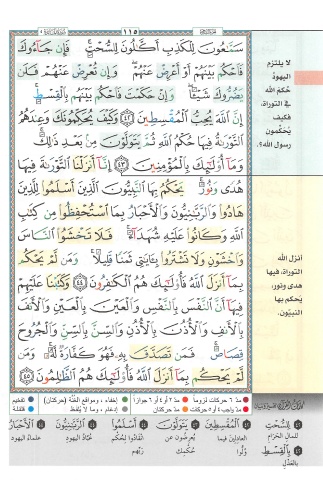 ١١٥
سَمَّٰعُونَ لِلْكَذِبِ أَكَّٰلُونَ لِلسُّحْتِ ۚ فَإِن جَآءُوكَ
فَٱحْكُم بَيْنَهُمْ أَوْ أَعْرِضْ عَنْهُمْ ۖ وَإِن تُعْرِضْ عَنْهُمْ فَلَن
يَضُرُّوكَ شَيْـًٔا ۖ وَإِنْ حَكَمْتَ فَٱحْكُم بَيْنَهُم بِٱلْقِسْطِ ۚ
إِنَّ ٱللَّهَ يُحِبُّ ٱلْمُقْسِطِينَ ٤٢ وَكَيْفَ يُحَكِّمُونَكَ وَعِندَهُمُ
ٱلتَّوْرَىٰةُ فِيهَا حُكْمُ ٱللَّهِ ثُمَّ يَتَوَلَّوْنَ مِنۢ بَعْدِ ذَٰلِكَ ۚ
وَمَآ أُو۟لَٰٓئِكَ بِٱلْمُؤْمِنِينَ ٤٣ إِنَّآ أَنزَلْنَا ٱلتَّوْرَىٰةَ فِيهَا
هُدًى وَنُورٌ ۚ يَحْكُمُ بِهَا ٱلنَّبِيُّونَ ٱلَّذِينَ أَسْلَمُوا۟ لِلَّذِينَ
هَادُوا۟ وَٱلرَّبَّٰنِيُّونَ وَٱلْأَحْبَارُ بِمَا ٱسْتُحْفِظُوا۟ مِن كِتَٰبِ
ٱللَّهِ وَكَانُوا۟ عَلَيْهِ شُهَدَآءَ ۚ فَلَا تَخْشَوُا۟ ٱلنَّاسَ
وَٱخْشَوْنِ وَلَا تَشْتَرُوا۟ بِـَٔايَٰتِى ثَمَنًا قَلِيلًا ۚ وَمَن لَّمْ يَحْكُم
بِمَآ أَنزَلَ ٱللَّهُ فَأُو۟لَٰٓئِكَ هُمُ ٱلْكَٰفِرُونَ ٤٤ وَكَتَبْنَا عَلَيْهِمْ
فِيهَآ أَنَّ ٱلنَّفْسَ بِٱلنَّفْسِ وَٱلْعَيْنَ بِٱلْعَيْنِ وَٱلْأَنفَ
بِٱلْأَنفِ وَٱلْأُذُنَ بِٱلْأُذُنِ وَٱلسِّنَّ بِٱلسِّنِّ وَٱلْجُرُوحَ
قِصَاصٌ ۚ فَمَن تَصَدَّقَ بِهِۦ فَهُوَ كَفَّارَةٌ لَّهُۥ ۚ وَمَن
لَّمْ يَحْكُم بِمَآ أَنزَلَ ٱللَّهُ فَأُو۟لَٰٓئِكَ هُمُ ٱلظَّٰلِمُونَ ٤٥
لا يلتزم
اليهودُ
حُكمَ الله
في التوراة،
فكيف
يُحكّمون
رسول الله؟.
أنزل الله
التوراة، فيها
هدى ونور،
يُحكم بها
النبيّون.
مدّ ٦ حركات لزوماً مدّ ٢ أو ٤ أو ٦ جوازاً إخفاء، ومواقع الغُنّة (حركتان) تفخيم
مدّ واجب ٤ أو ٥ حركات مدّ حركتان إدغام، وما لا يُلفظ قلقلة
٤٢ لِلسُّحْتِ
للمال الحَرام
٤٢ بِالْقِسْطِ
بالعَدْل
٤٢ الْمُقْسِطِينَ
العادلين فيما وُلُّوا
٤٣ يَتَوَلَّوْنَ
يُعرِضون عن حُكمِك
٤٤ أَسْلَمُوا
انْقادُوا لحُكم ربِّهم
٤٤ الرَّبَّانِيُّونَ
عُبَّادُ اليهود
٤٤ الأَحْبَارُ
علماءُ اليهود